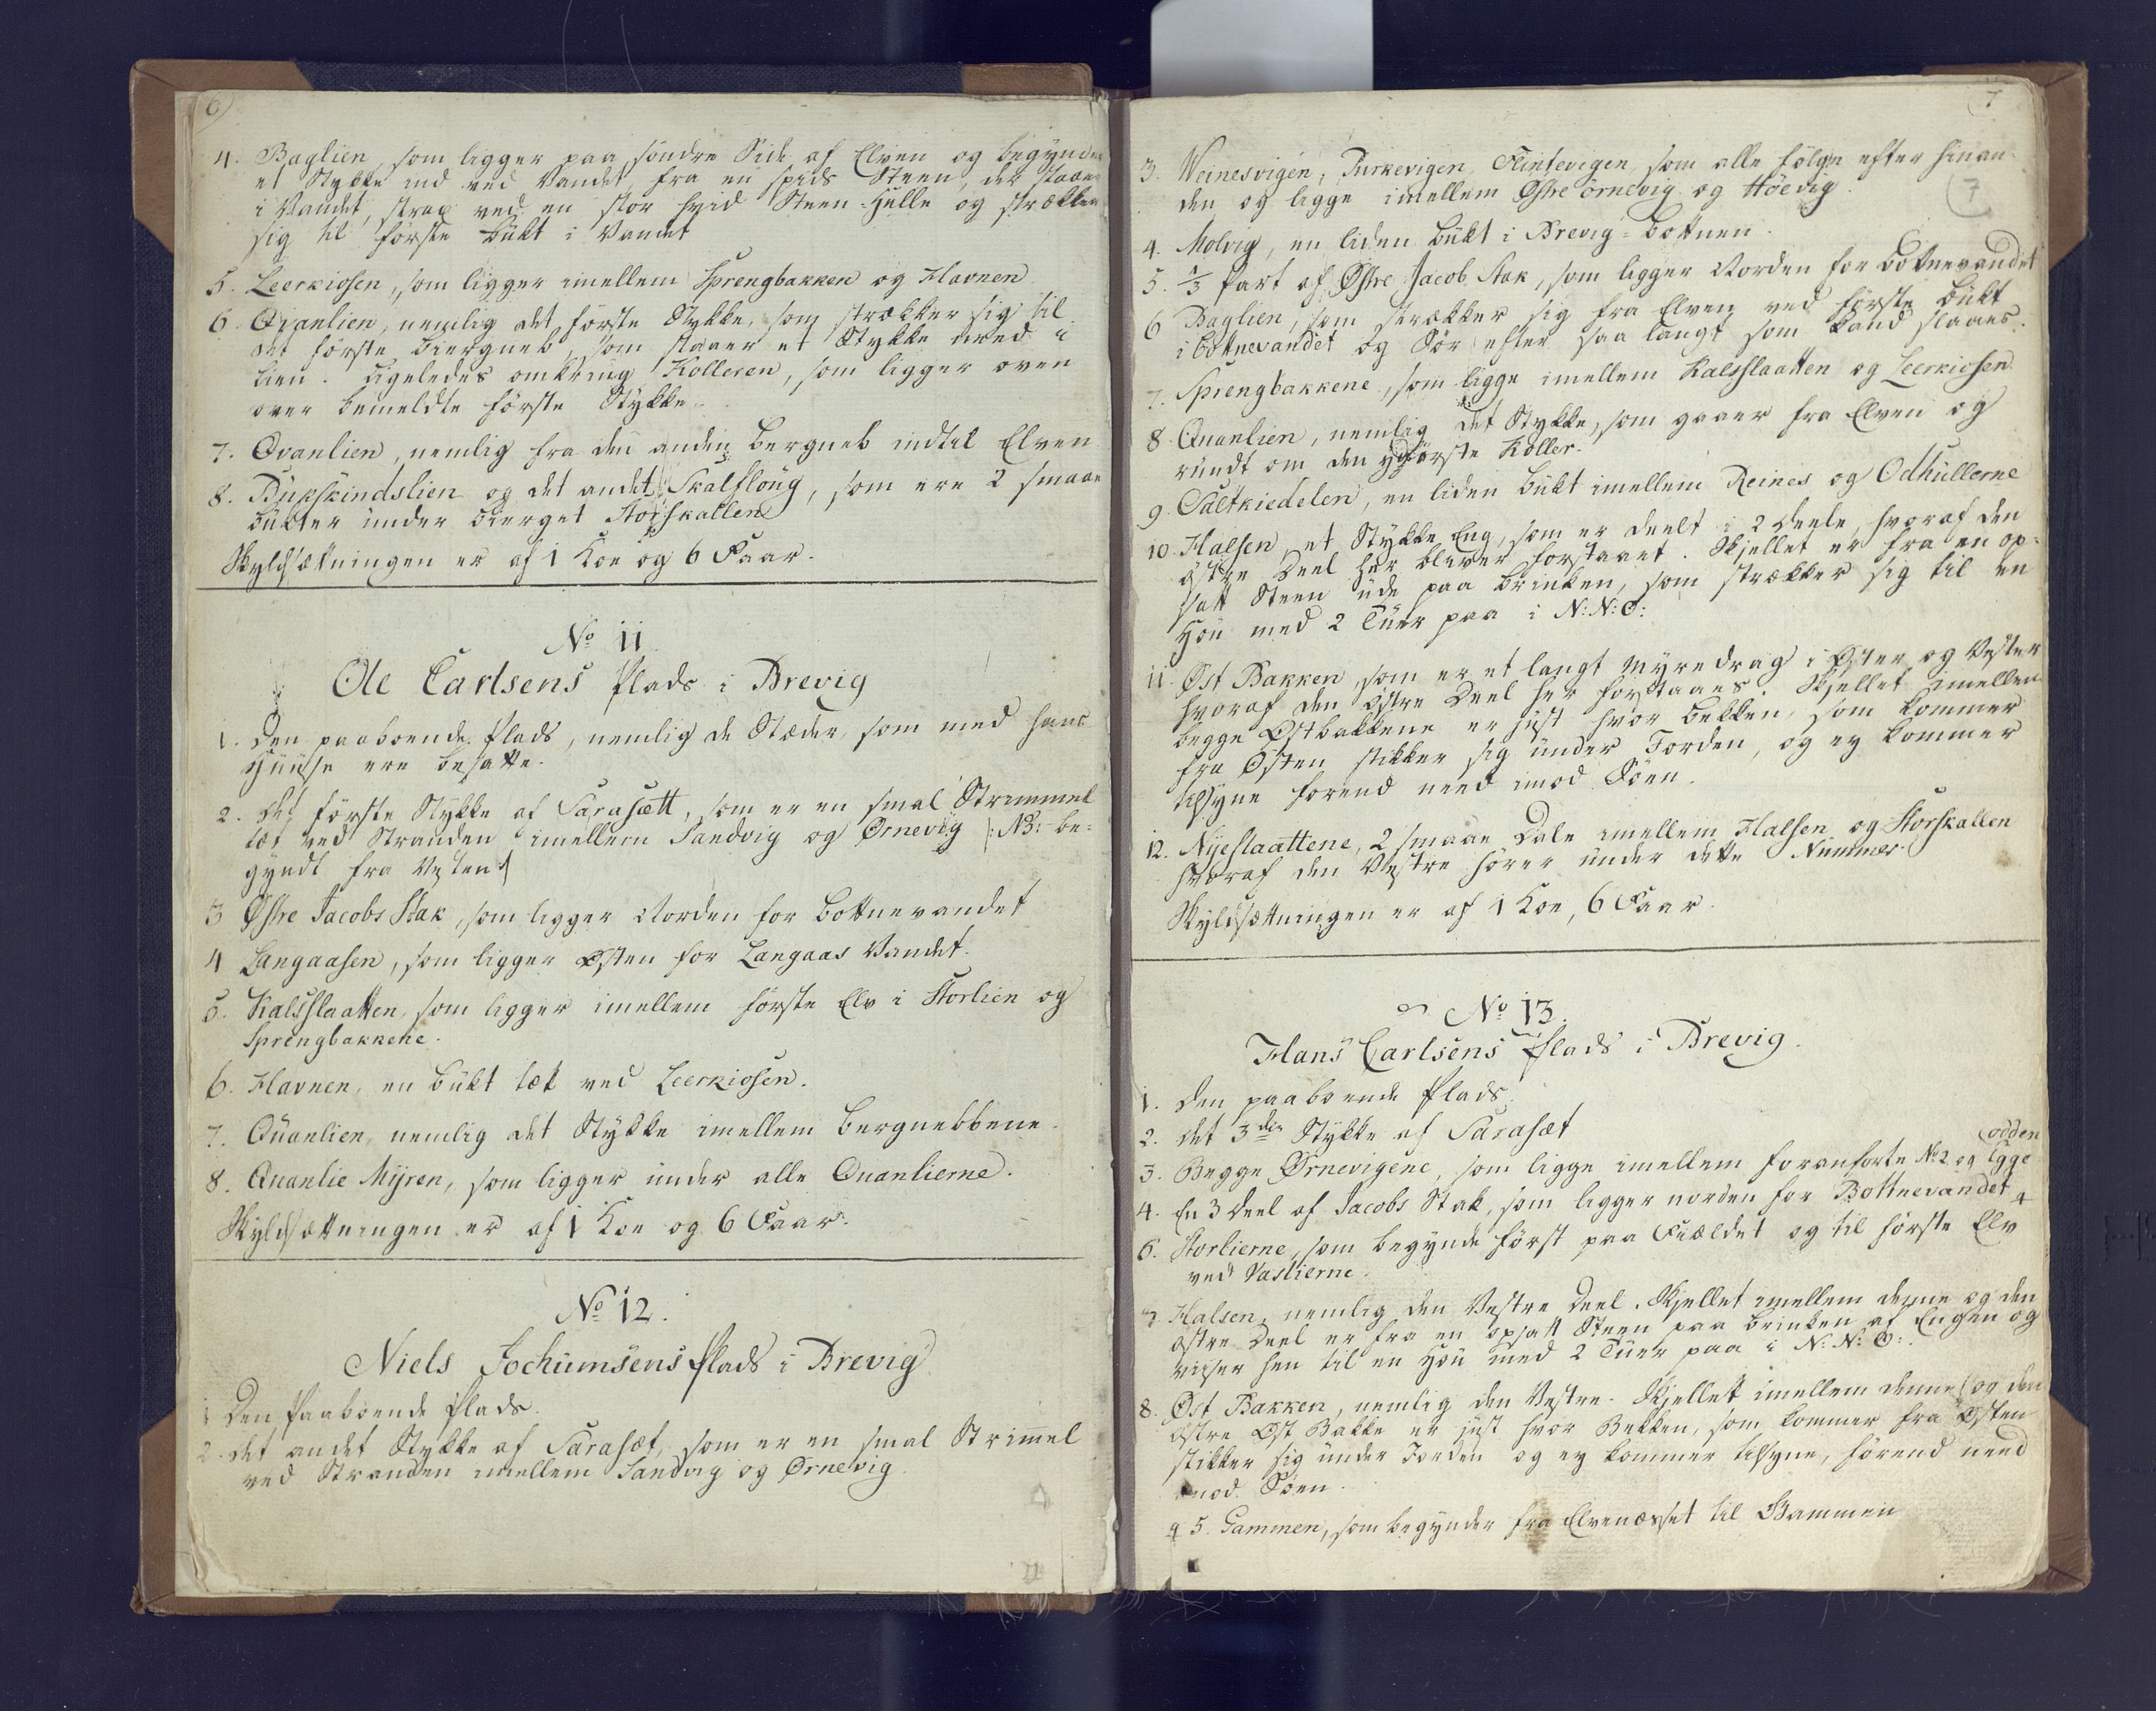 6
4. Baglien, som ligger paa söndre Side af Elven og begynder
et Stykke ind ved Vandet fra en spids Steen, der staaer
i Vandet, strax ved en stor hvid Steen-Helle og strækker
sig til första Bugt i Vandet
5. Leerkiosen, som ligger imellem Sprengbakken og Havnen
6. Qvanlien, nemlig det förste Stykke, som strækker sig til
det förste Biergneb, som staaer et Stykke need i
Lien. Ligeledes omkring Kolleren, som ligger oven
over bemeldte förste Stykke.
7. Qvanlien, nemlig fra den anden Bergneb indtil Elven
8. Bukskindslien og det andet Skalflöug, som ere 2 smaae
Bugter under Bierget Storskallen
Skyldsætningen er af 1 Koe og 6 Faar.
No 11
Ole Carlsens Plads i Brevig
1. Den paaboende Plads, nemlig de Stæder, som med hans
Huuse ere besatte.
2. Det förste Stykke af Sarasætt, som er en smal Strimmel
tæt ved Stranden imellem Sandvig og Ørnevig |: NB: be-
gyndt fra Vesten :|
3 Østre Jacobs Stak, som ligger Norden for Bottnevandet
4 Langaasen, som ligger Østen for Langaas Vandet.
5. Kalfslaatten, som ligger imellem förste Elv i Storlien og
Sprengbakkene.
6. Havnen, en Bugt tæt ved Leerkiosen.
7. Qvanlien, nemlig det Stykke imellem Bergnebbene.
8. Qvanlie Myren, som ligger under alle Qvanlierne.
Skyldsætningen er af 1 Koe og 6 Faar.
No 12.
Niels Jochumsens Plads i Brevig
1 Den Paaboende Plads.
2. det andet Stykke af Sarasæt, som er en smal Strimmel
ved Stranden imellem Sandvig og Ørnevig
7
3. Weinesvigen, Purkevigen, Flintevigen, som alle fölge efter hinan-
den og ligge imellem Østre Örnevig og Höevig.
7
4. Molvig, en liden Bugt i Brevig-Bottnen.
5. 1/3 Part af Østre Jacob Stak, som ligger Norden for Bottnevandet
6 Baglien, som strækker sig fra Elven ved förste Bugt
i Bottnevandet og Sör efter saa langt som kand slaaes.
7. Sprengbakkene, som ligge imellem Kalfslaatten og Leerkiosen
8. Qvanlien, nemlig det Stykke, som gaaer fra Elven og
rundt om den yderste Koller.
9. Saltkiedelen, en liden Bugt imellem Reines og Odhullerne
10. Halsen, et Stykke Eng, som er deelt i 2 Deele, hvoraf den
östre Deel her bliver forstaaet. Skjellet er fra en op-
satt Steen ude paa Brinken, som strækker sig til en
Höu med 2 Tuer paa i N: N: O:
11. Øst Bakken, som er et langt Myredrag i Øster og Vester
hvoraf den östre Deel her forstaaes. Skjellet imellem
begge Østbakkene er just hvor Bekken, som kommer
fra Østen stikker sig under Jorden, og ey kommer
tilsyne forend need imod Söen.
12. Nyeslaattene, 2 smaae Dale imellem Halsen og Storskallen
hvoraf den Vestre hörer under dette Nummer.
Skyldsætningen er af 1 Koe, 6 Faar.
No 13.
Hans Carlsens Plads i Brevig.
1. Den paaboende Plads.
2. det 3die Stykke af Sarasæt
3. Begge Ørnevigene, som ligge imellem foranförte No 2 og Egge
odden
4. En 3 Deel af Jacobs Stak, som ligger norden for Bottnevandet
6. Storlierne, som begynde först paa Fieldet og til förste Elv
ved Vaslierne.
7 Halsen, nemlig den Vestre Deel. Skjellet imellem denne og den
östre Deel er fra en opsatt Steen paa Brinken af Engen og
viiser hen til en Höu med 2 Tuer paa i N: N: O:
8. Øst Bakken, nemlig den Vestre. Skjellet imellem denne og den
östre Øst Bakke er just hvor Bekken, som kommer fra Østen
stikker sig under Jorden og ey kommer tilsyne, förend need
imod Söen.
5. Gammen, som begynder fra Elvenæsset til Gammen